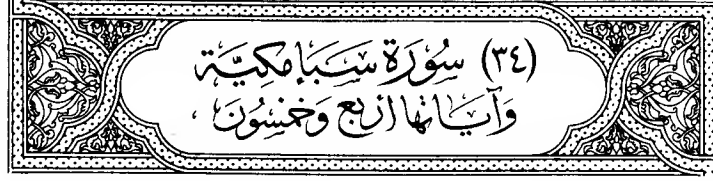 (٣٤) سُوْرَة سَبَإ مَكِيَّة
وَآيَاتُهَا أَرْبَع وَخَمْسُونَ